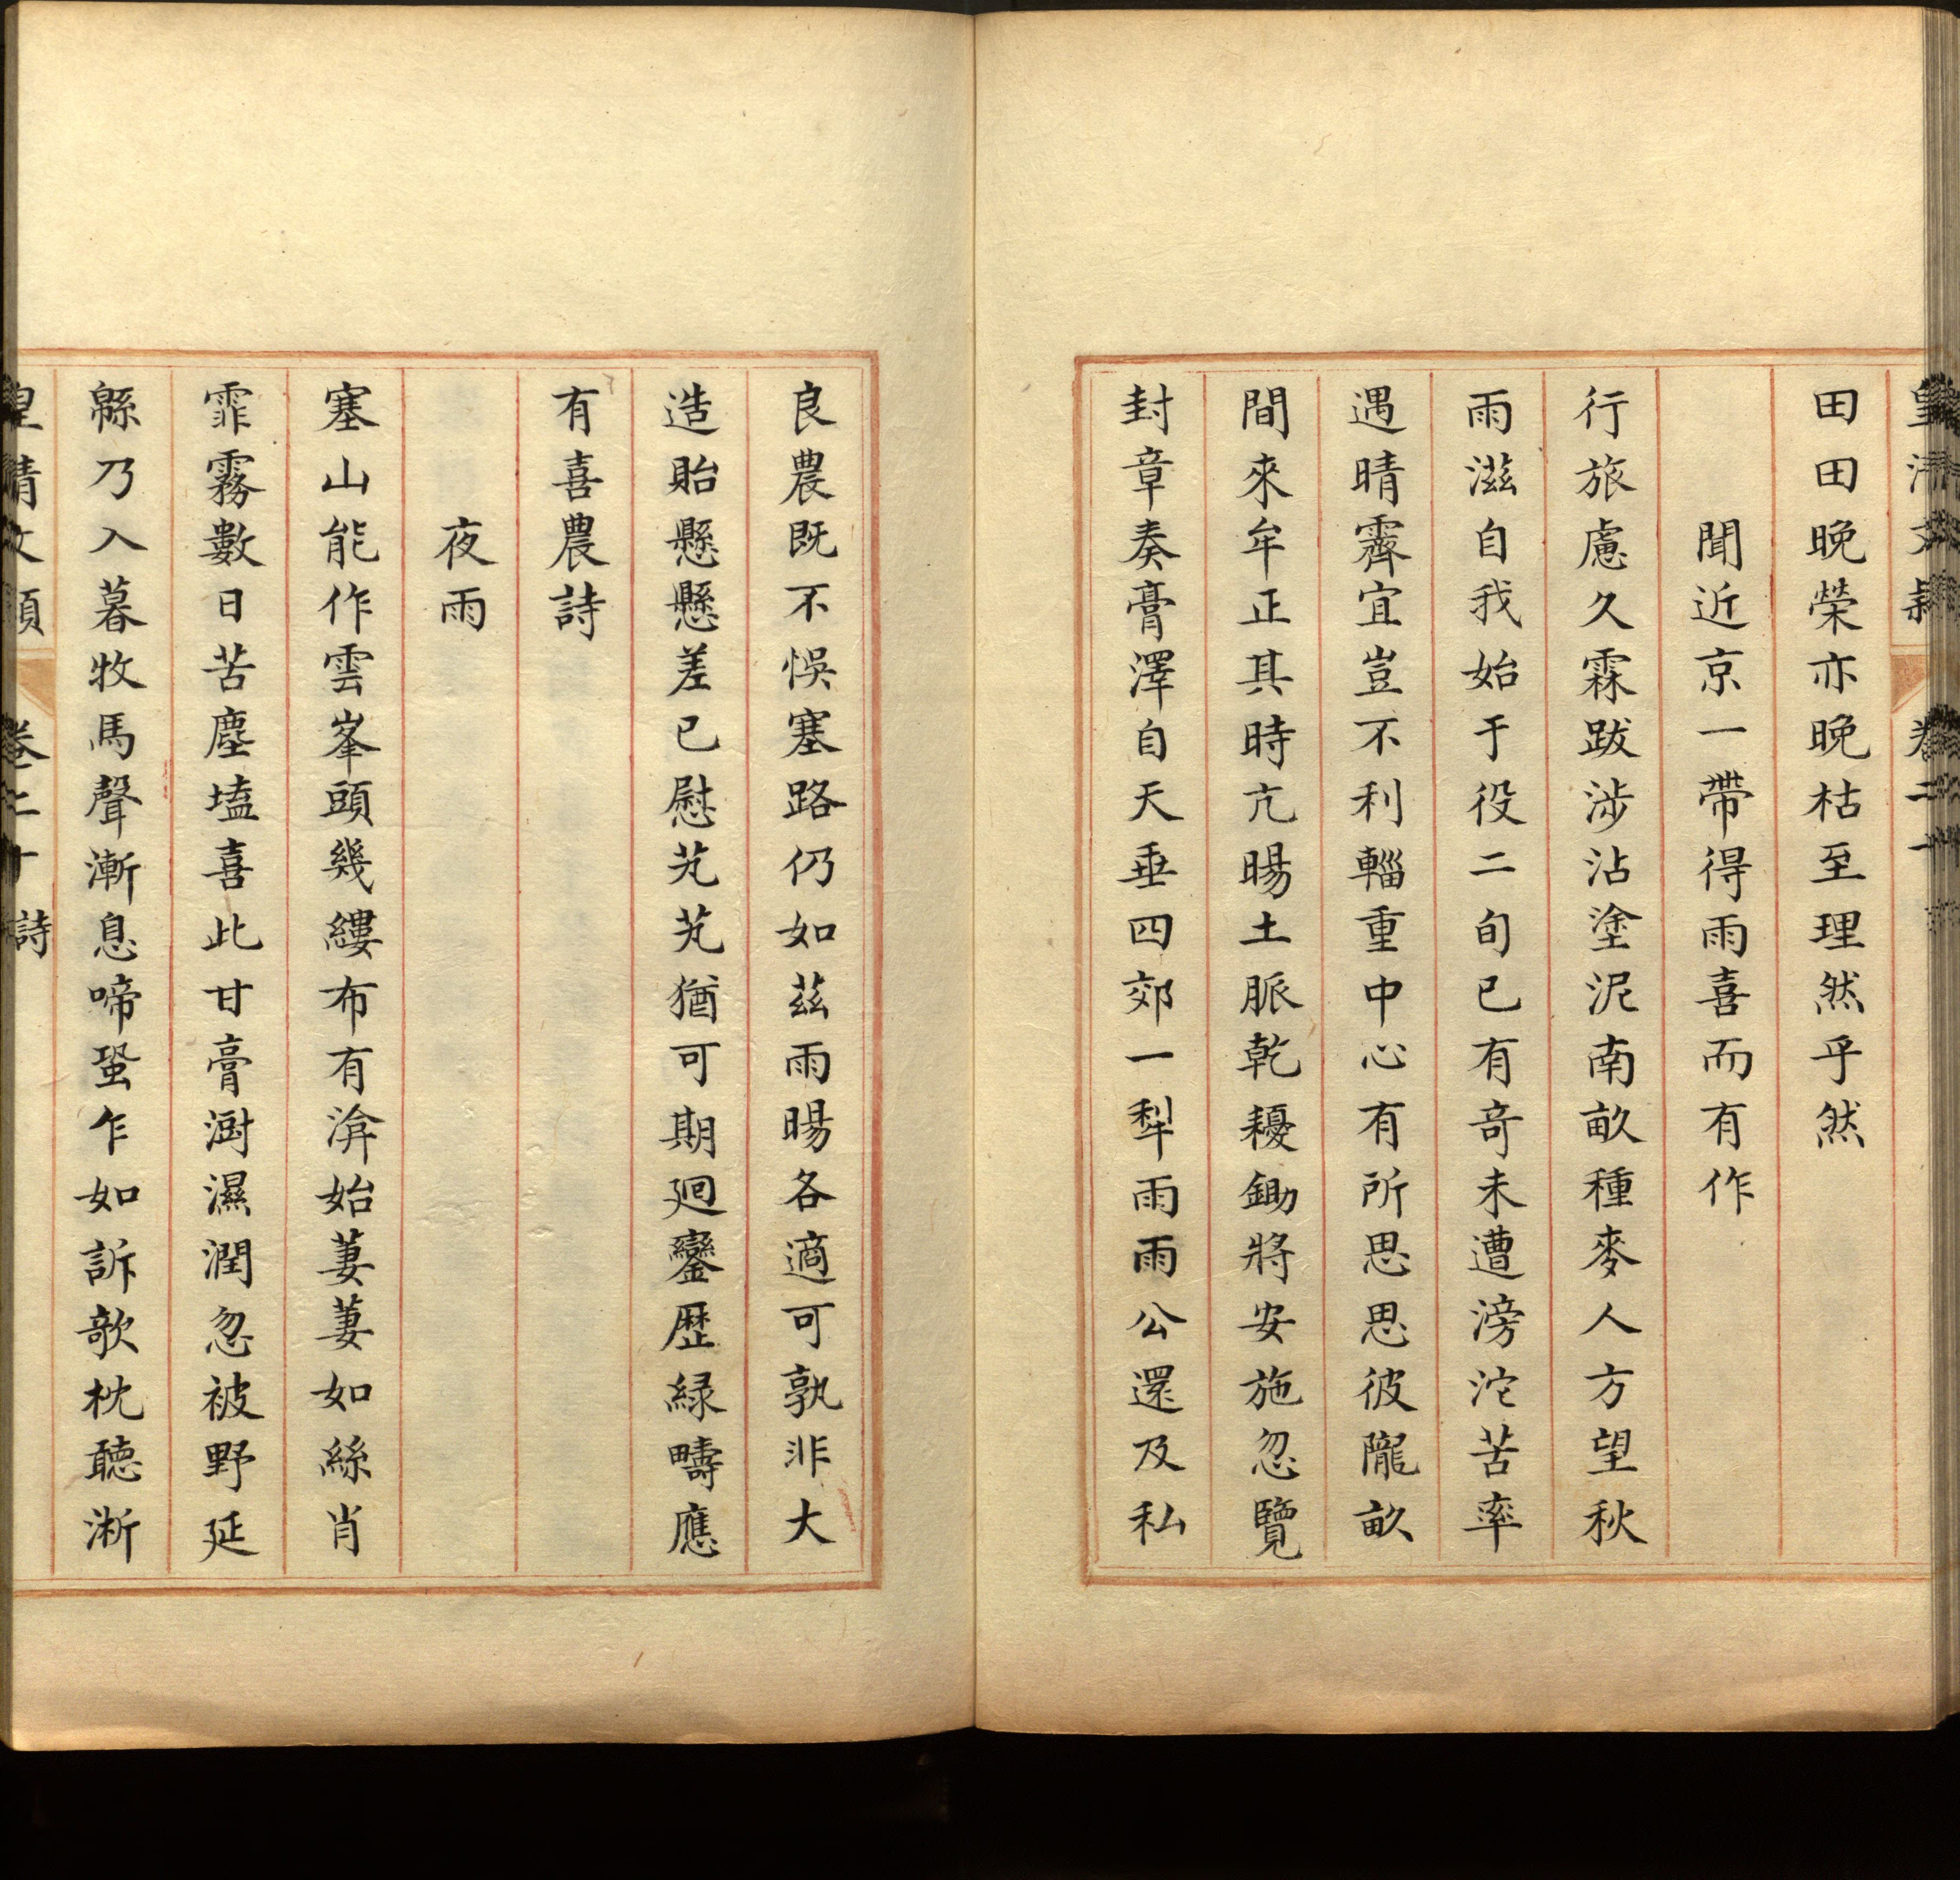 皇清文穎 卷二十
田田晚榮亦晚枯至理然乎然
聞近京一帶得雨喜而有作
行旅慮久霖跋涉沾塗泥南畝種麥人方望秋
雨滋自我始于役二旬已有奇未遭滂沱苦率
遇晴霽宜豈不利輜重中心有所思思彼隴畝
間來牟正其時亢暘土脈乾耰鋤將安施忽覽
封章奏膏澤自天垂四郊一犁雨雨公還及私
良農既不悞塞路仍如茲雨暘各適可孰非大
造貽懸懸差已慰芃芃猶可期廻鑾歷緑疇應
有喜農詩
夜雨
塞山能作雲峯頭幾縷布有渰始萋萋如絲肖
霏霧數日苦塵壒喜此甘膏澍濕潤忽被野延
緜乃入暮牧馬聲漸息啼蛩乍如訴欹枕聽淅
皇清文穎 卷二十 詩